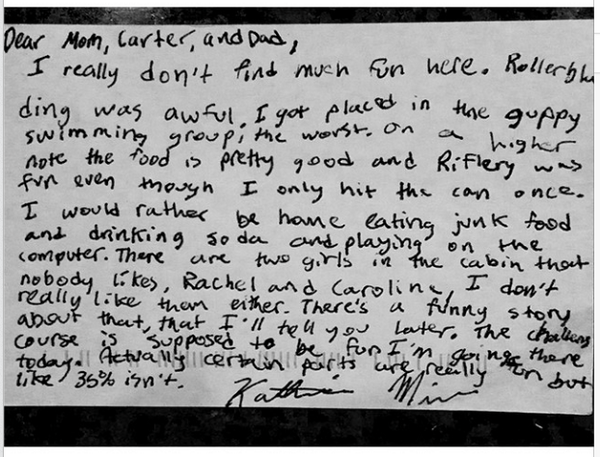 Dear Mom, Carter, and Dad,
I really don't find much fun here. Rollerbla
ding was awful. I got placed in the guppy
swimming group, the worst. On a higher
note the food is pretty good and Riflery was
fun even though I only hit the can once.
I would rather be home eating junk food
and drinking soda and playing on the
computer. There are two girls in the cabin that
nobody likes, Rachel and Caroline, I don't
really like them either. There's a funny story
about that, that I'll tell you later. The challeng
course is supposed to be fun I'm going there
today. Actually certain parts are really fun but
like 35% isn't.